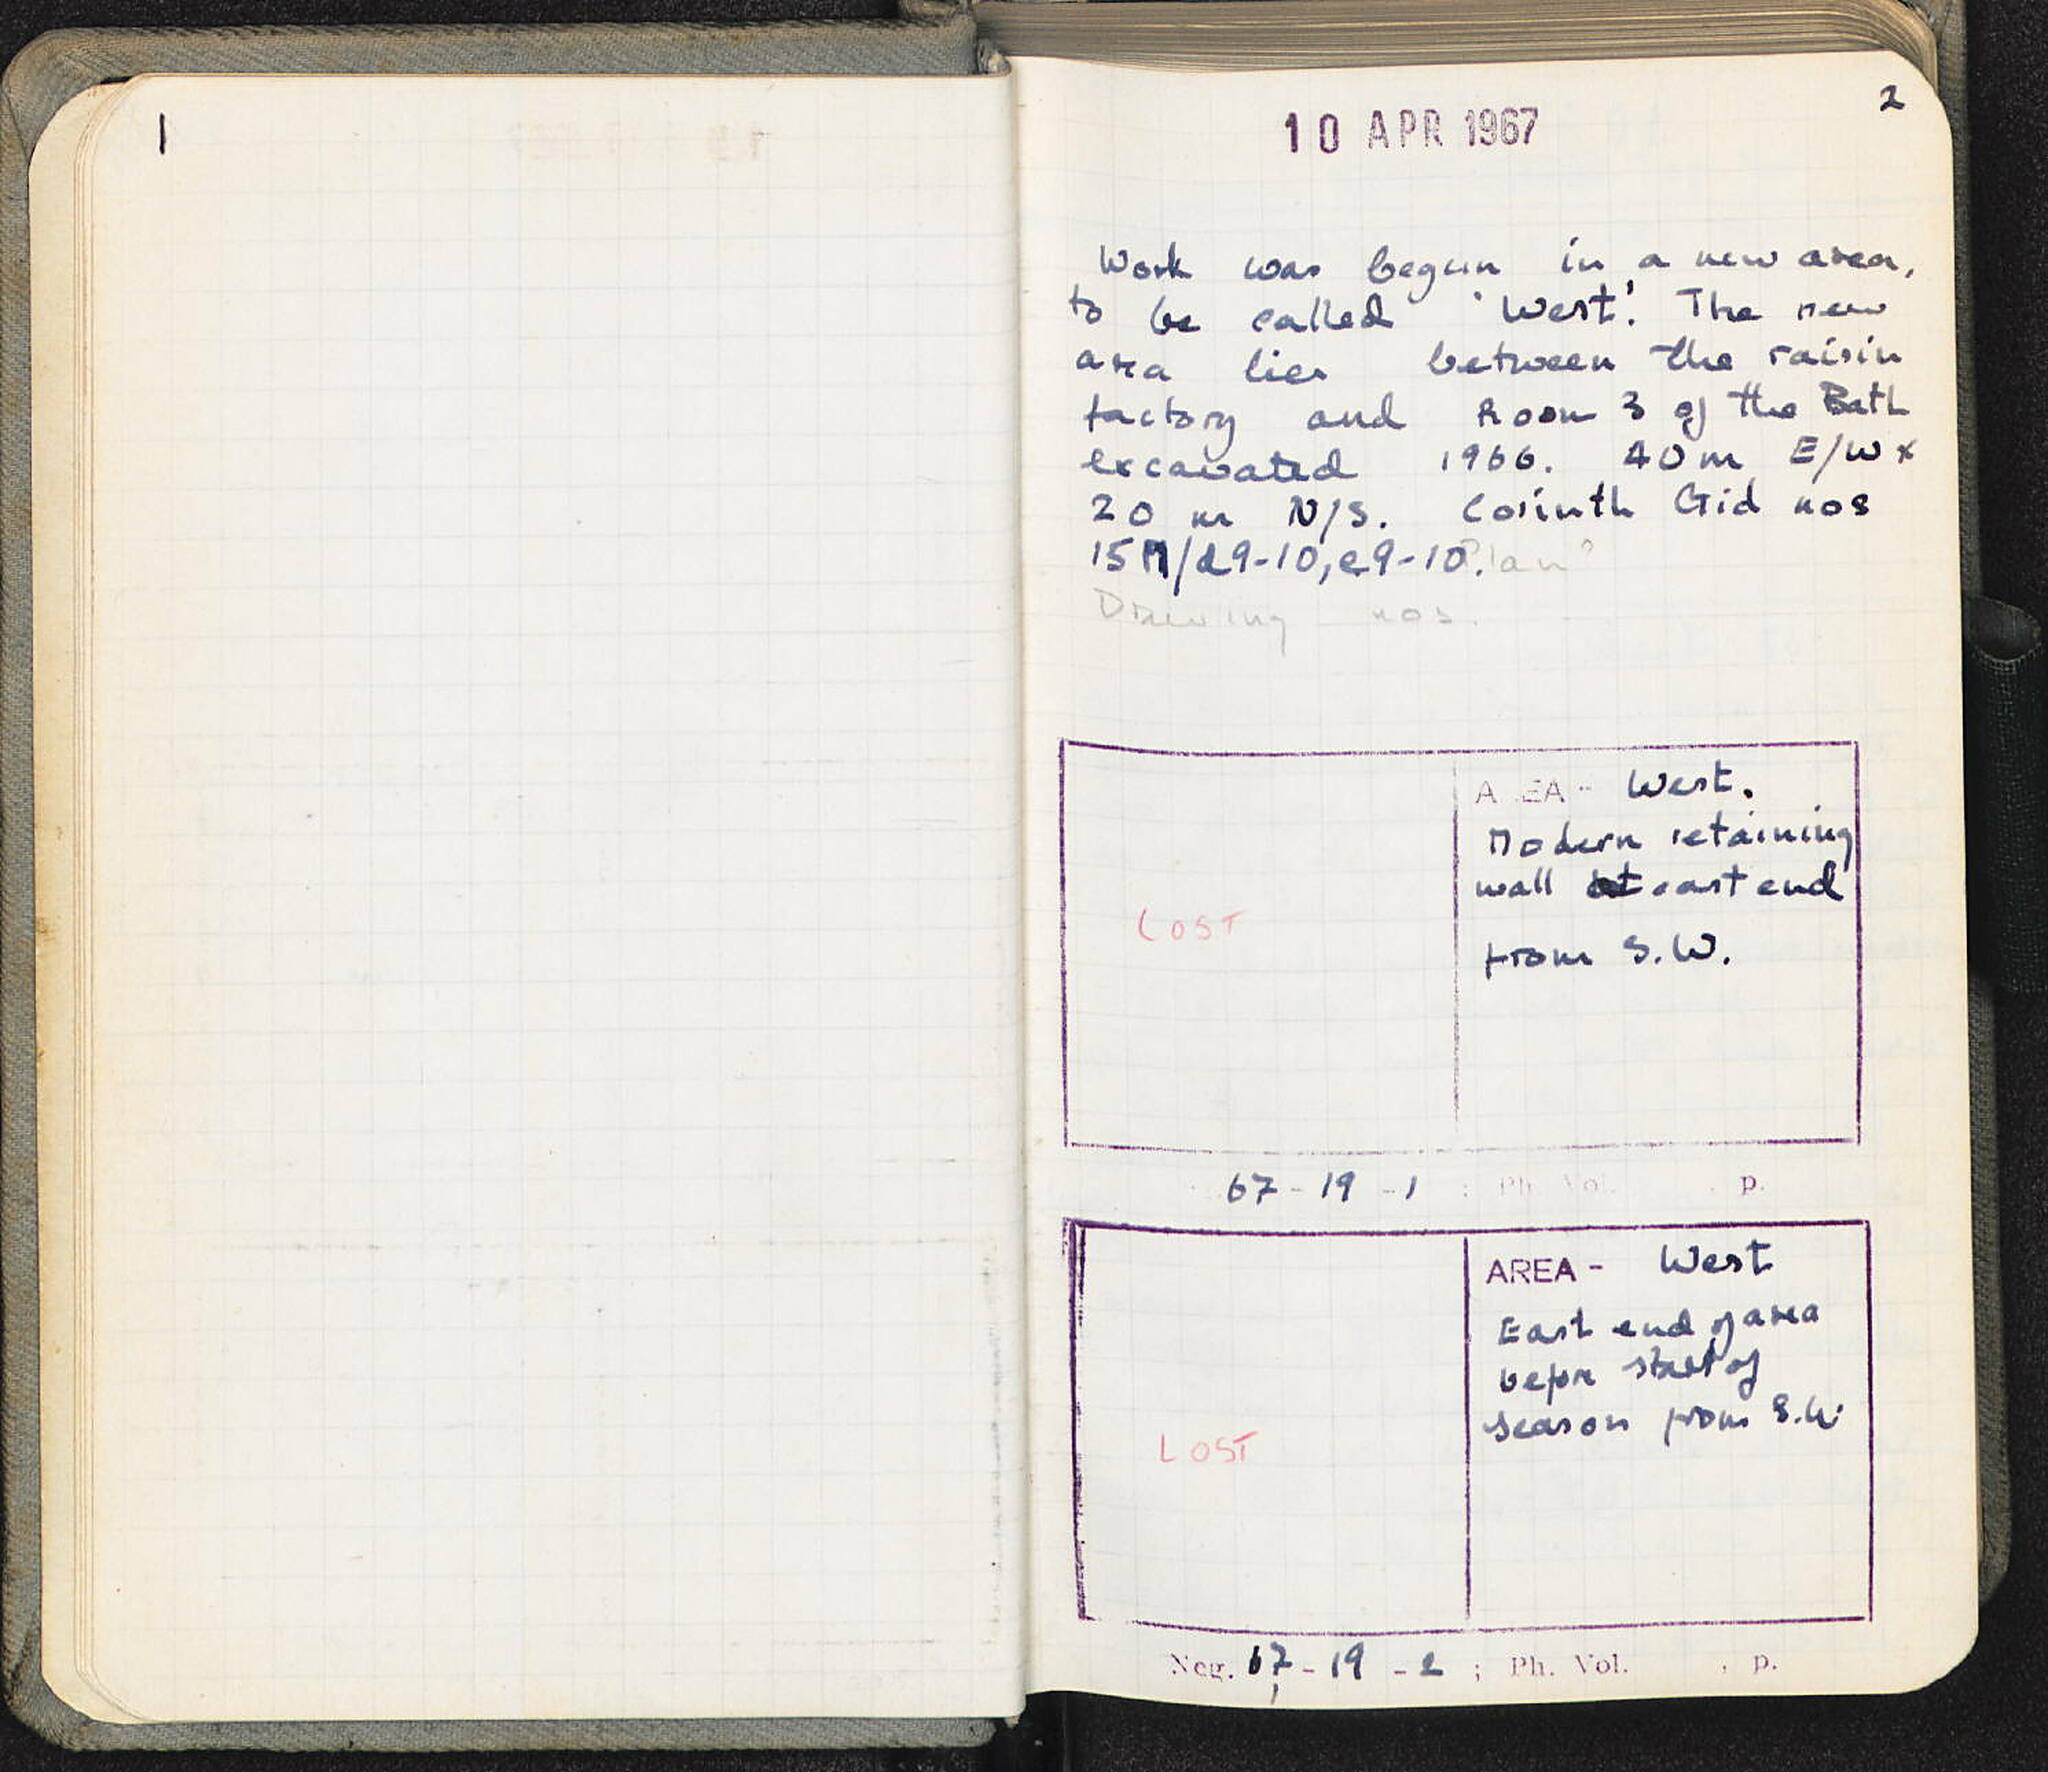 1
2
10 APR 1967
Work was begun in a new area,
to be called 'West'. The new
area lies between the raisin
factory and Room 3 of the Bath
excavated 1966. 40m E/W x
20 m N/S. Corinth Gid nos
15M/d9-10, e9-10. Plan?
Drawing nos.
A EA - West.
Modern retaining
wall at east end
from S.W.
LOST
67-19-1 ; Ph. Vol. , p.
AREA - West
East end of area
before start of
season from S.W.
LOST
Neg. 67-19-2 ; Ph. Vol. , p.